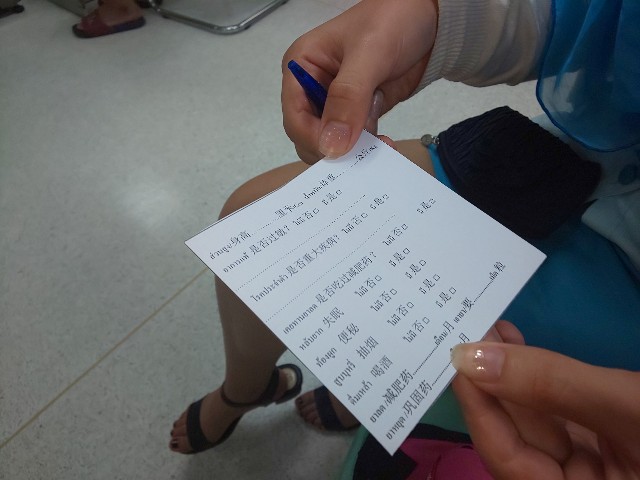 ส่วนสูง身高.........里ๆ 体重......公斤
อาการแพ้ 是否过敏? ไม่มี 否□ มี 是□
โรคประจำตัว 是否重大疾病? ไม่มี 否□ มี 是□
เคยทานยาลด 是否吃过减肥药? ไม่มี 否□ มี 是□
หลับยาก 失眠 ไม่มี 否□ มี 是□
ท้องผูก 便秘 ไม่มี 否□ มี 是□
สูบบุหรี่ 抽烟 ไม่มี 否□ มี 是□
ดื่มเหล้า 喝酒 ไม่มี 否□ มี 是□
ยาลด/减肥药.........เดือน/月 要.........เม็ด 粒
ยาหยุด/巩固药.........月